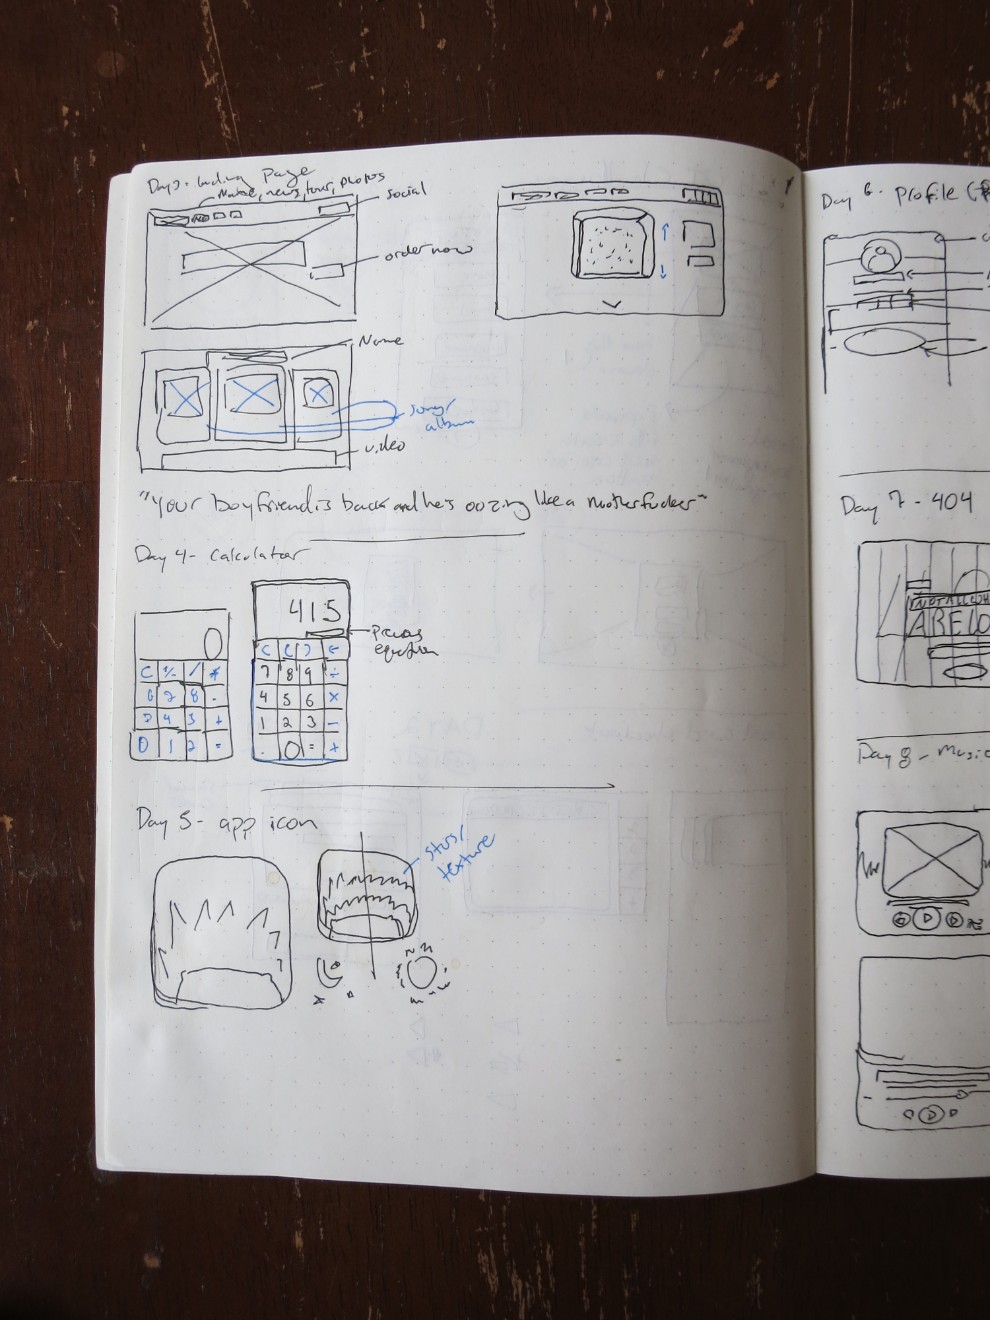 Day 3 - landing page
Music, news, tour, photos
social
order now
Name
song/
album
video
"Your boyfriend is back and he's oozing like a motherfucker"
Day 4 - calculator
0
C +/- /
-
4 3 +
0 1 2 =
415
Previous
equation
C ( ) ←
7 8 9 ÷
4 5 6 ×
1 2 3 -
. 0 = +
Day 5 - app icon
texture
Day 6 - profile
Day 7 - 404
Day 8 - Music